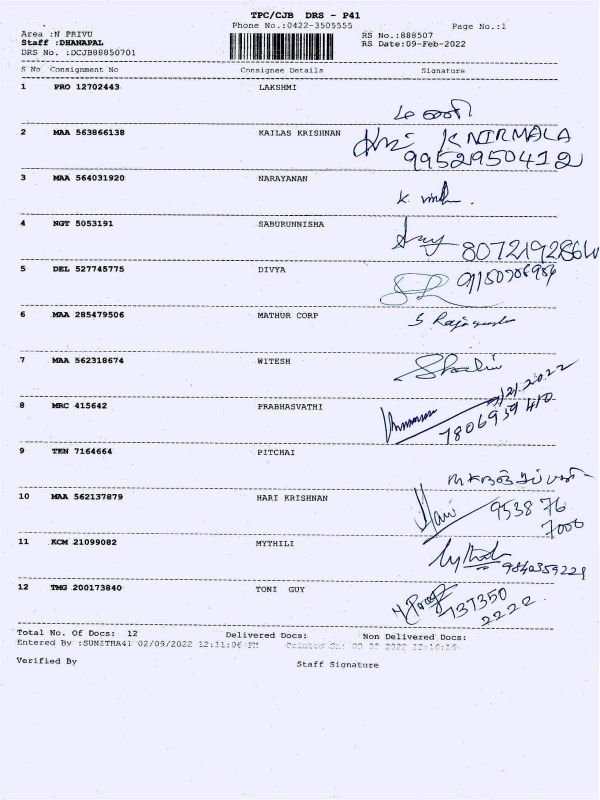 TPC/CJB DRS - P41
Phone No.:0422-3505555
Page No.:1
Area :N PRIVU
RS No.:888507
Staff :DHANAPAL
RS Date:09-Feb-2022
DRS No. :DCJB88850701
S No Consignment No Consignee Details Signature
1 PRO 12702443 LAKSHMI
2 MAA 563866138 KAILAS KRISHNAN K NIRMALA
9952950412
3 MAA 564031920 NARAYANAN
4 NGT 5053191 SABURUNNISHA
5 DEL 527745775 DIVYA
6 MAA 285479506 MATHUR CORP
7 MAA 562318674 WITESH
8 MRC 415642 PRABHASVATHI
7806939410
9 TEN 7164664 PITCHAI
10 MAA 562137879 HARI KRISHNAN Hari 953876
7000
11 KCM 21099082 MYTHILI
9840359221
12 TMG 200173840 TONI GUY 737350
2222
Total No. Of Docs: 12 Delivered Docs: Non Delivered Docs:
Entered By :SUNITHA41 02/09/2022 12:11:06 PM
Verified By Staff Signature